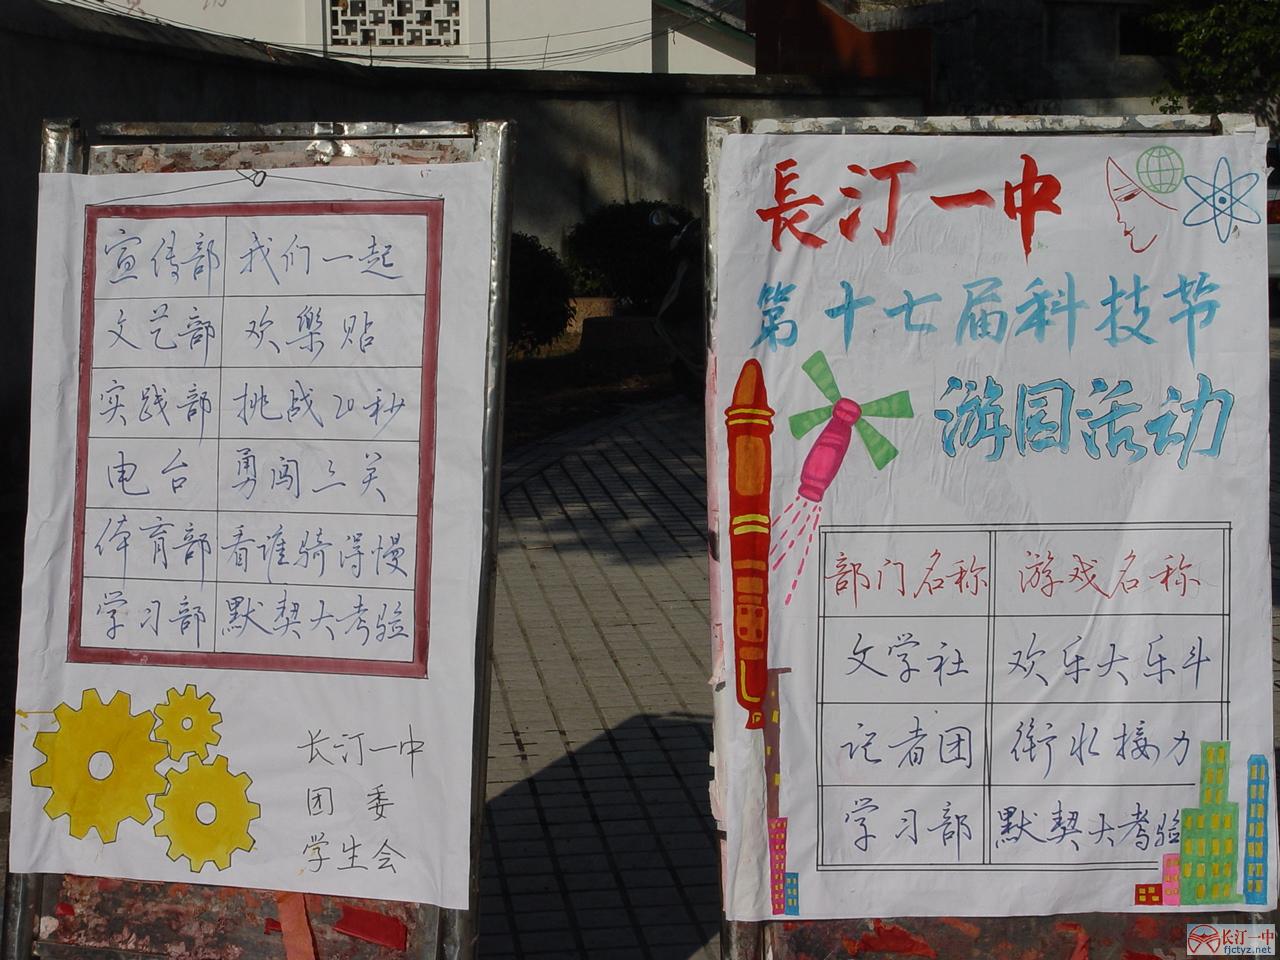 宣传部 我们一起
文艺部 欢樂贴
实践部 挑战20秒
电台 勇闯三关
体育部 看谁骑得慢
学习部 默契大考验
长汀一中
团委
学生会
長汀一中
第十七届科技节
游园活动
部门名称 游戏名称
文学社 欢乐大乐斗
记者团 衔水接力
学习部 默契大考验
长汀一中
fjctyz.net